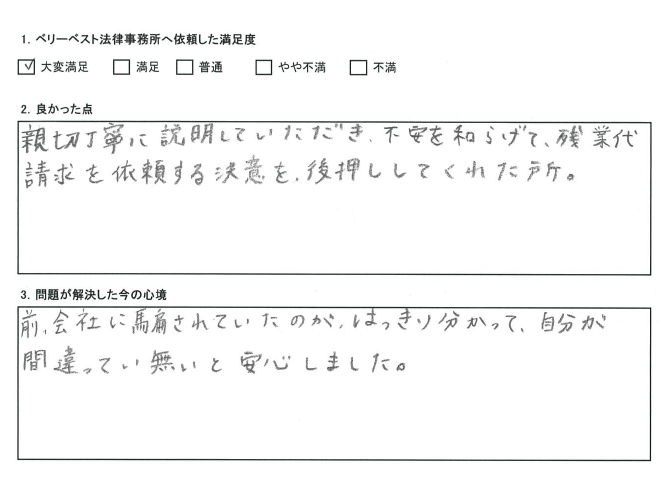 1. ベリーベスト法律事務所へ依頼した満足度
大変満足 満足 普通 やや不満 不満
2. 良かった点
親切丁寧に説明していただき、不安を和らげて、残業代
請求を依頼する決意を、後押ししてくれた所。
3. 問題が解決した今の心境
前、会社に騙されていたのが、はっきり分かって、自分が
間違ってい無いと安心しました。